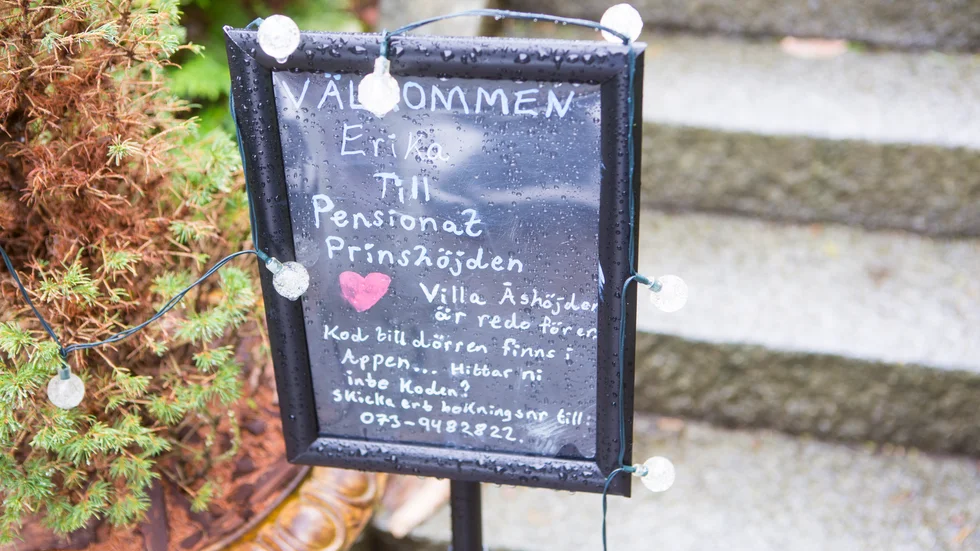 VÄLKOMMEN
Erika
Till
Pensionat
Prinshöjden
Villa Åshöjden
är redo för er
Kod till dörren finns i
Appen... Hittar ni
inte Koden?
Skicka ert bokningsnr till:
073-9482822.